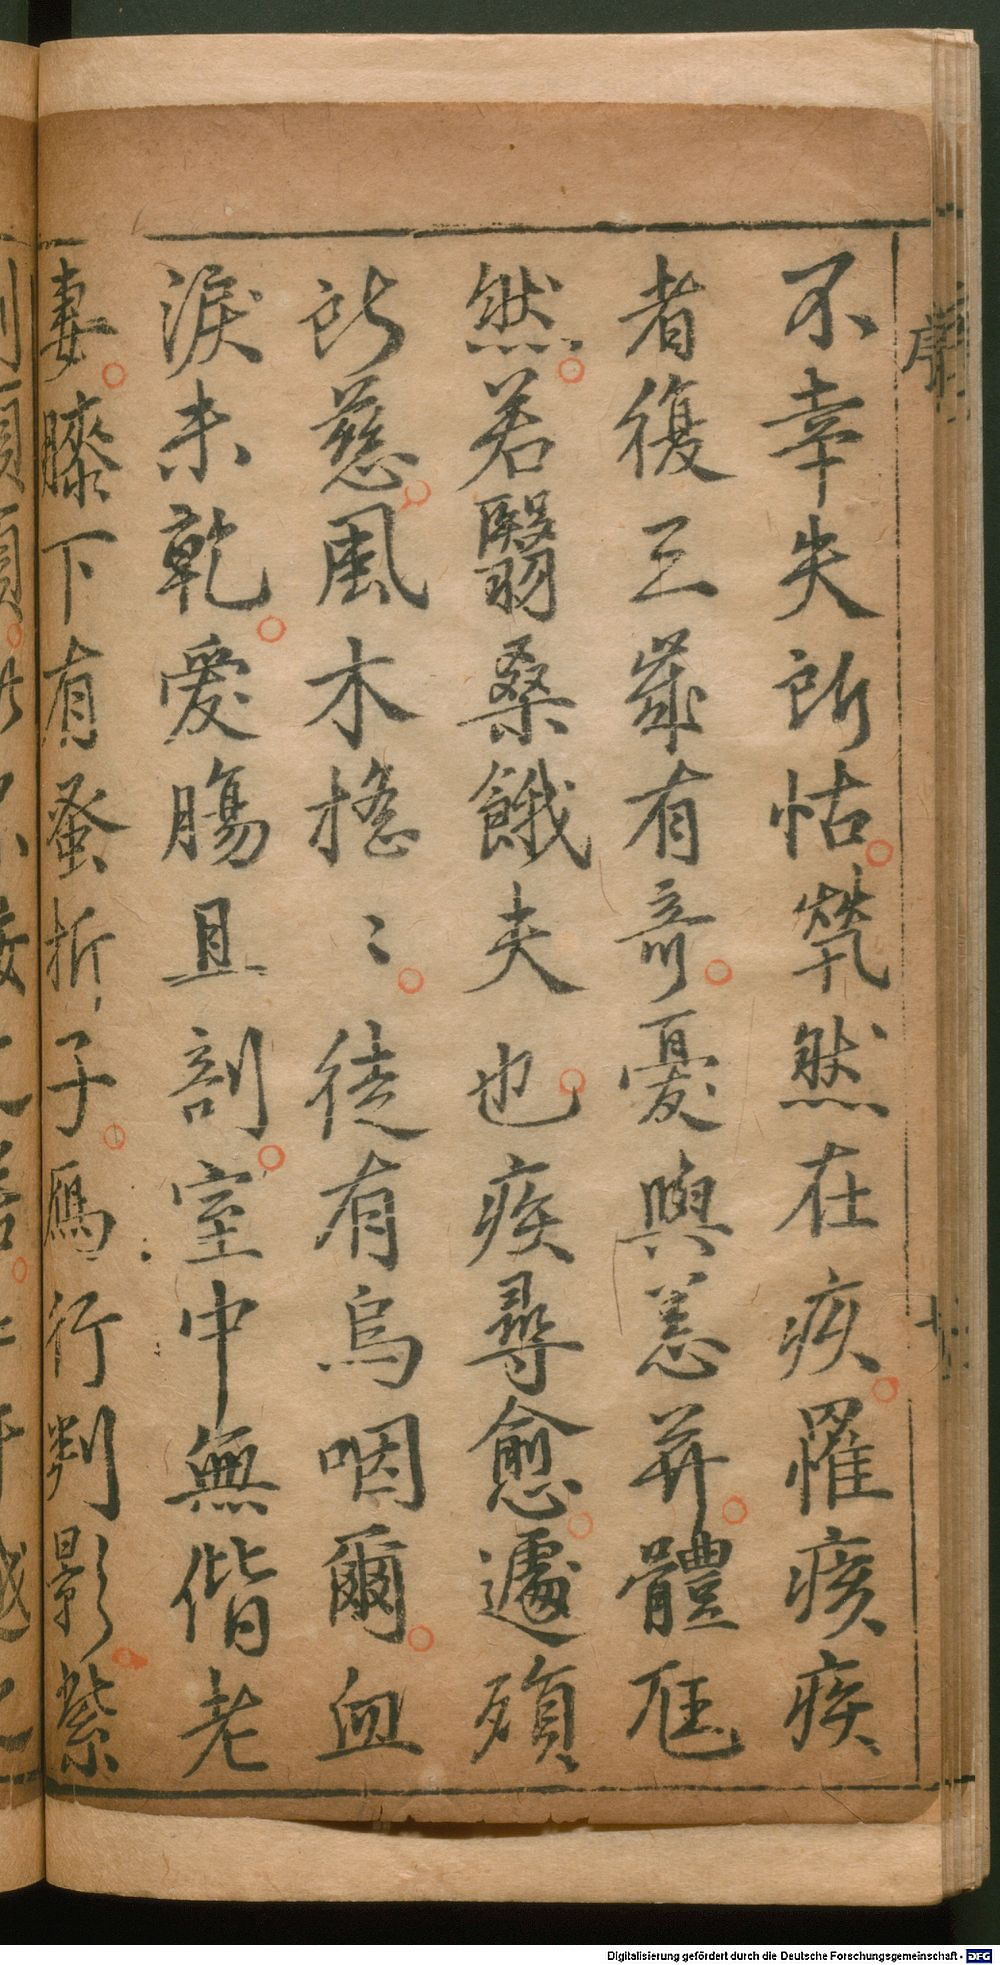 不幸失所怙煢然在疚罹痰疾
者復三歲有奇憂與恙并體尪
然若翳桑餓夫也疾尋愈遽殞
所慈風木搖〻徒有烏咽爾血
淚未乾愛腸且剖室中無偕老
妻膝下有蚤折子鴈行判影紫
序
Digitalisierung gefördert durch die Deutsche Forschungsgemeinschaft - DFG